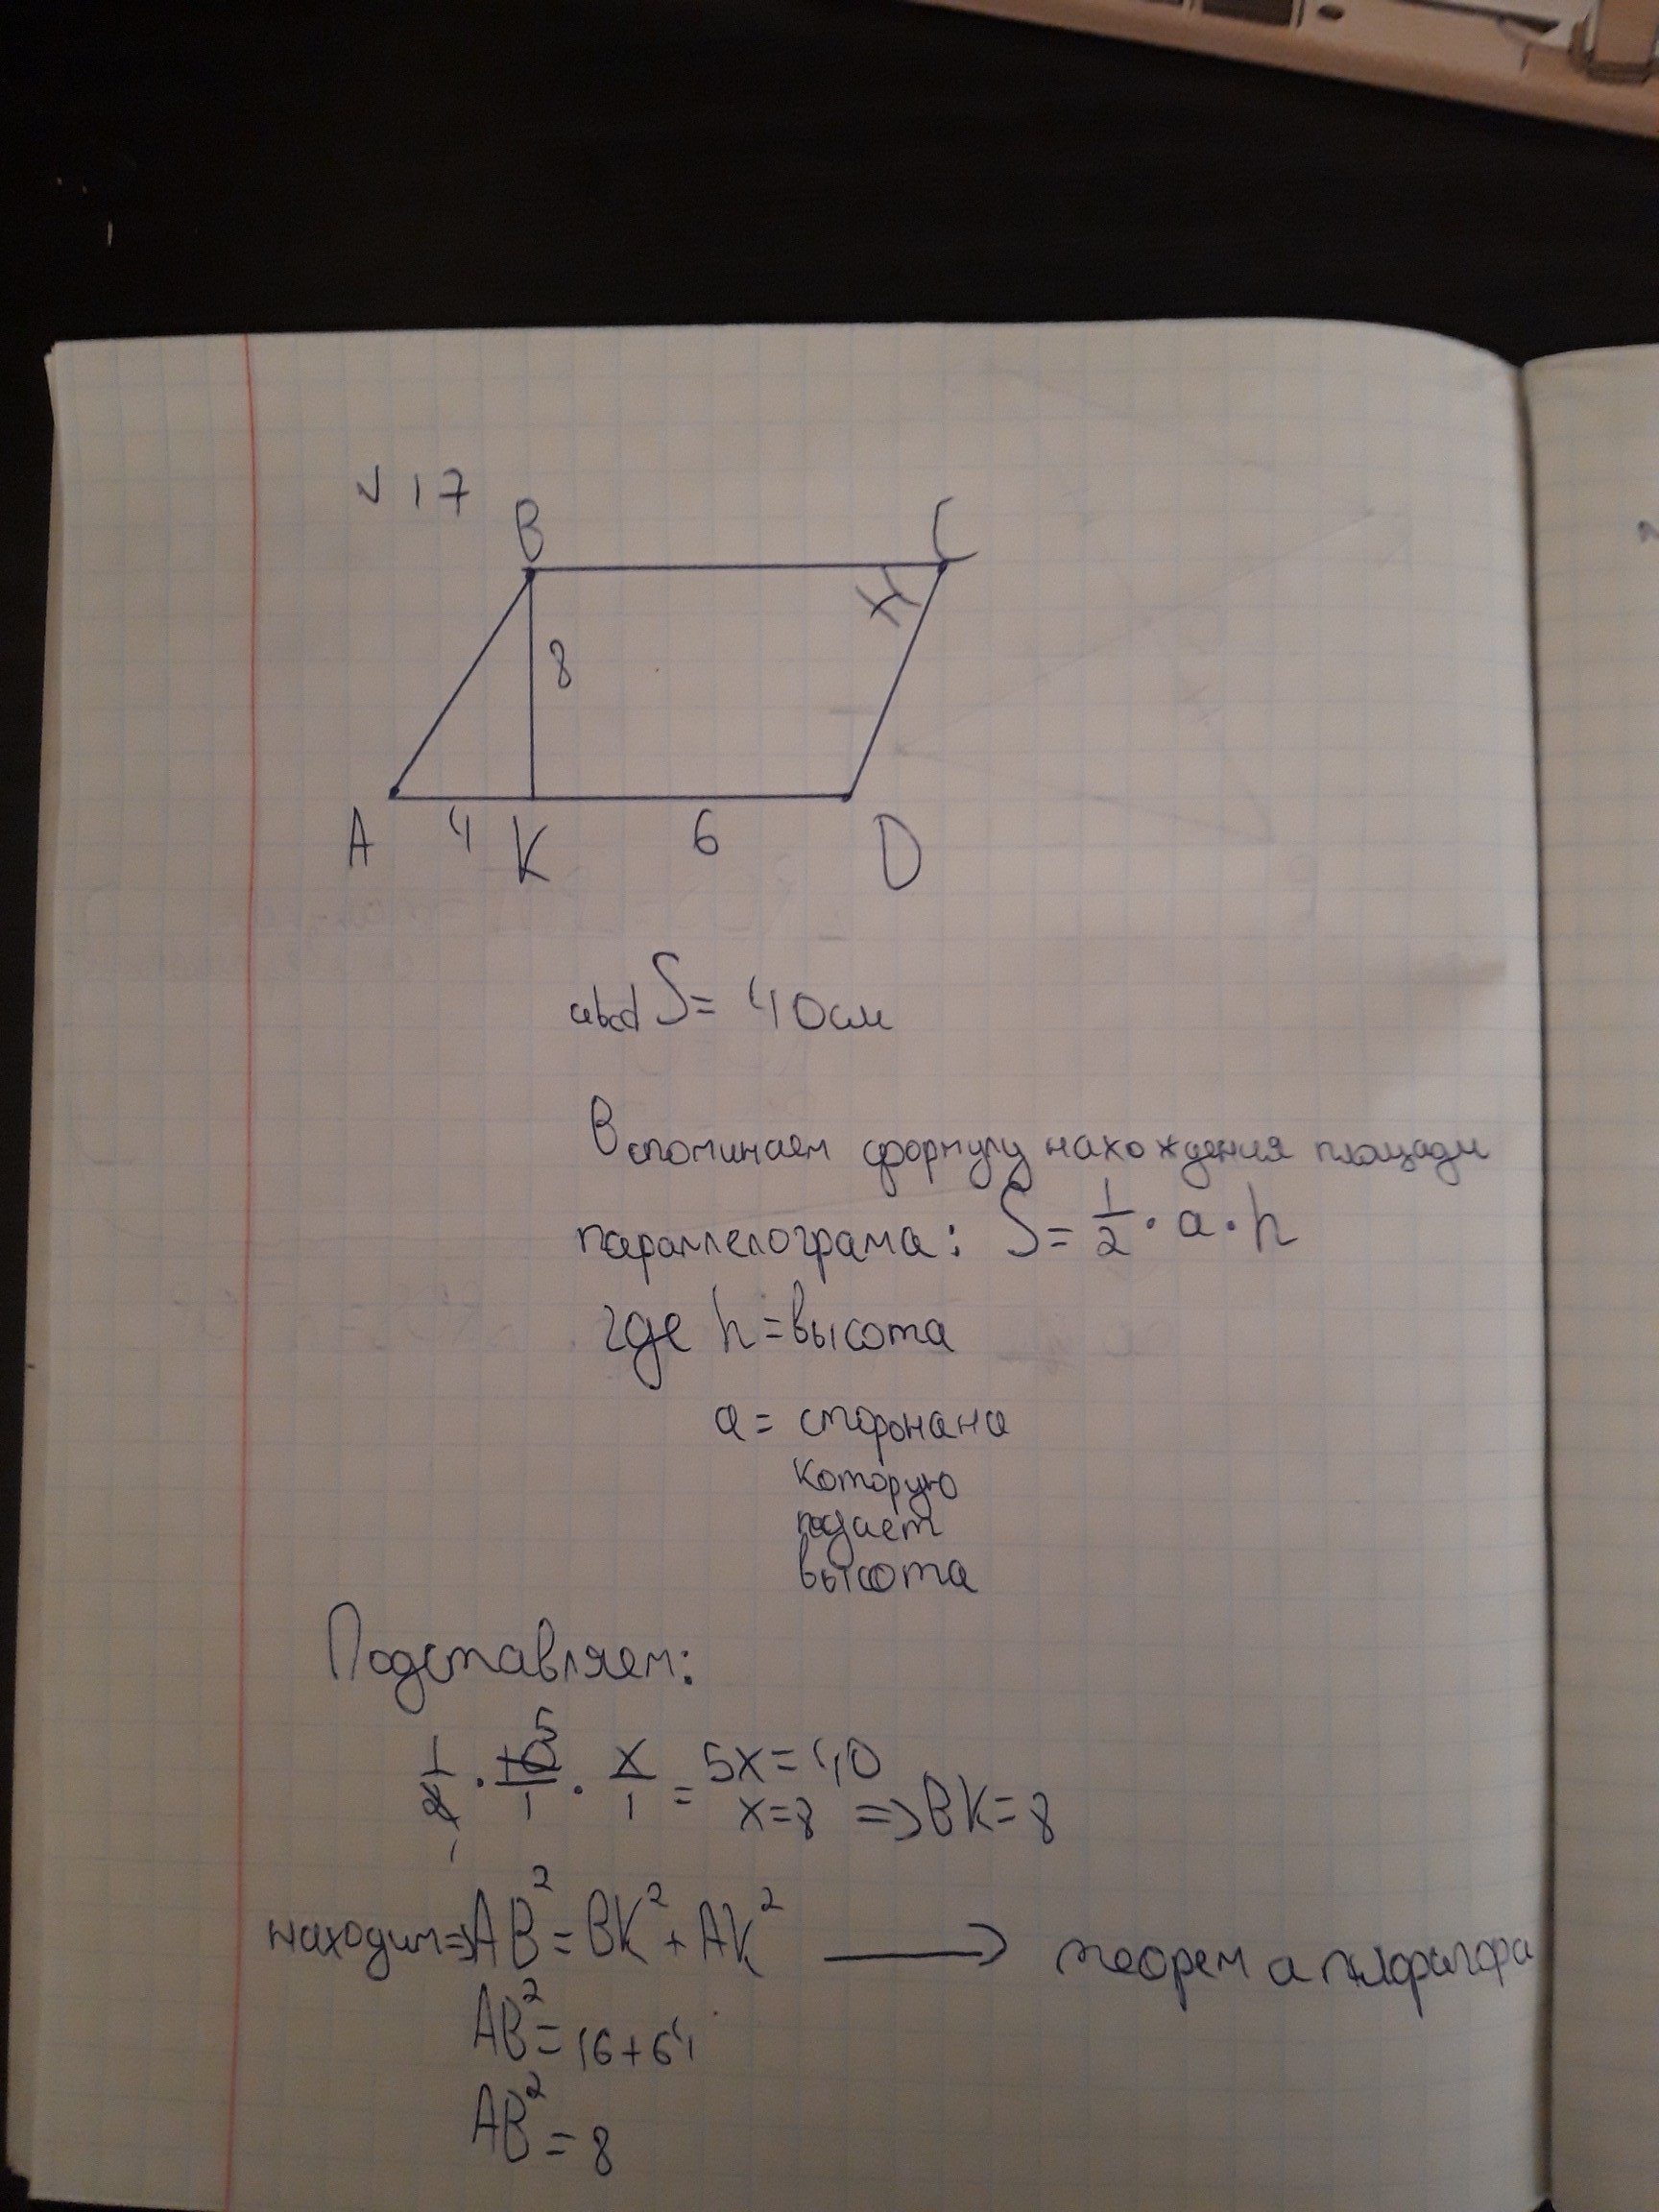 √ 17
B C
8
A 4 K 6 D
abcd S= 40см
Вспоминаем формулу нахождения площади
параллелограма: S= 1/2 · a · h
где h = высота
a = сторонана
которую
подает
высота
Подставляем:
1/2 · 10/1 · x/1 = 5x = 40
5
1
x=8 => BK=8
находим => AB² = BK² + AK² → теорема пифагора
AB² = 16+64
AB² = 8